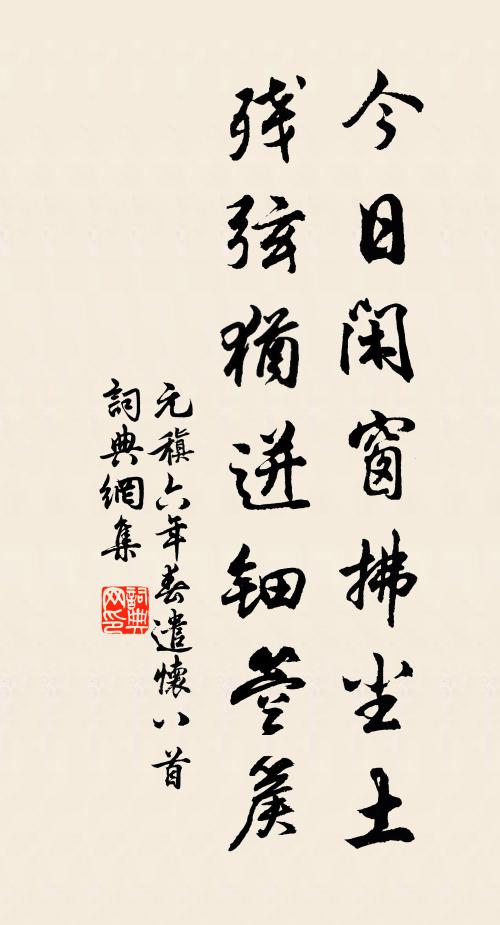 今日闲窗拂尘土
残弦犹迸钿箜篌
元稹六年春遣懷八首
詞典網集
詞典网印